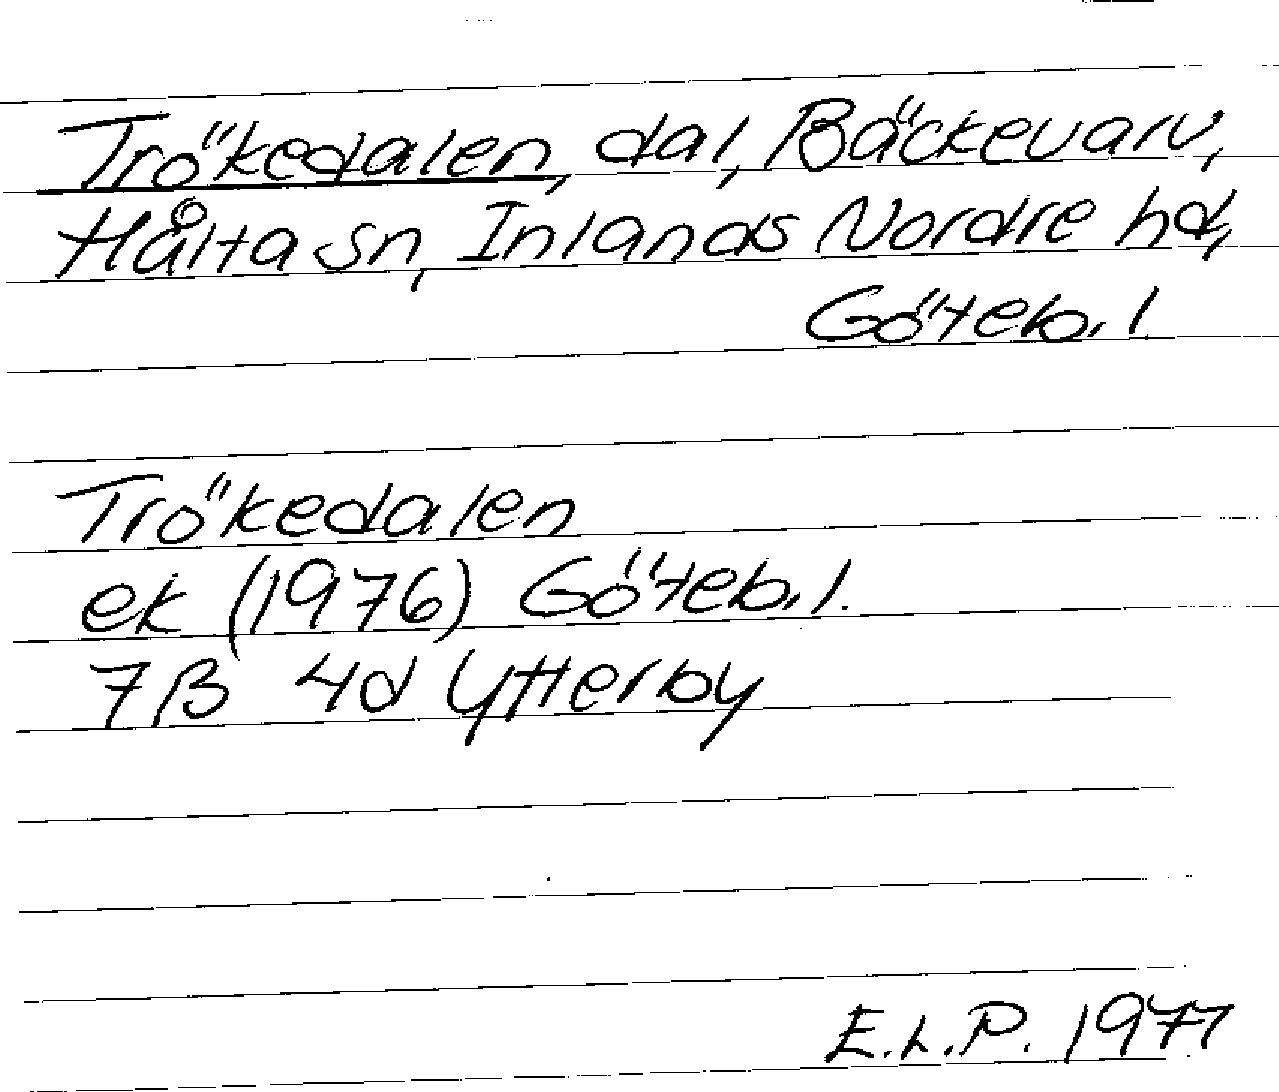 Trökedalen, dal, Bäckevarv,
Hålta sn, Inlands Nordre hd,
Göteb. l
Trökedalen
ek (1976) Göteb. l.
7B 4d Ytterby
E.L.P. 1977